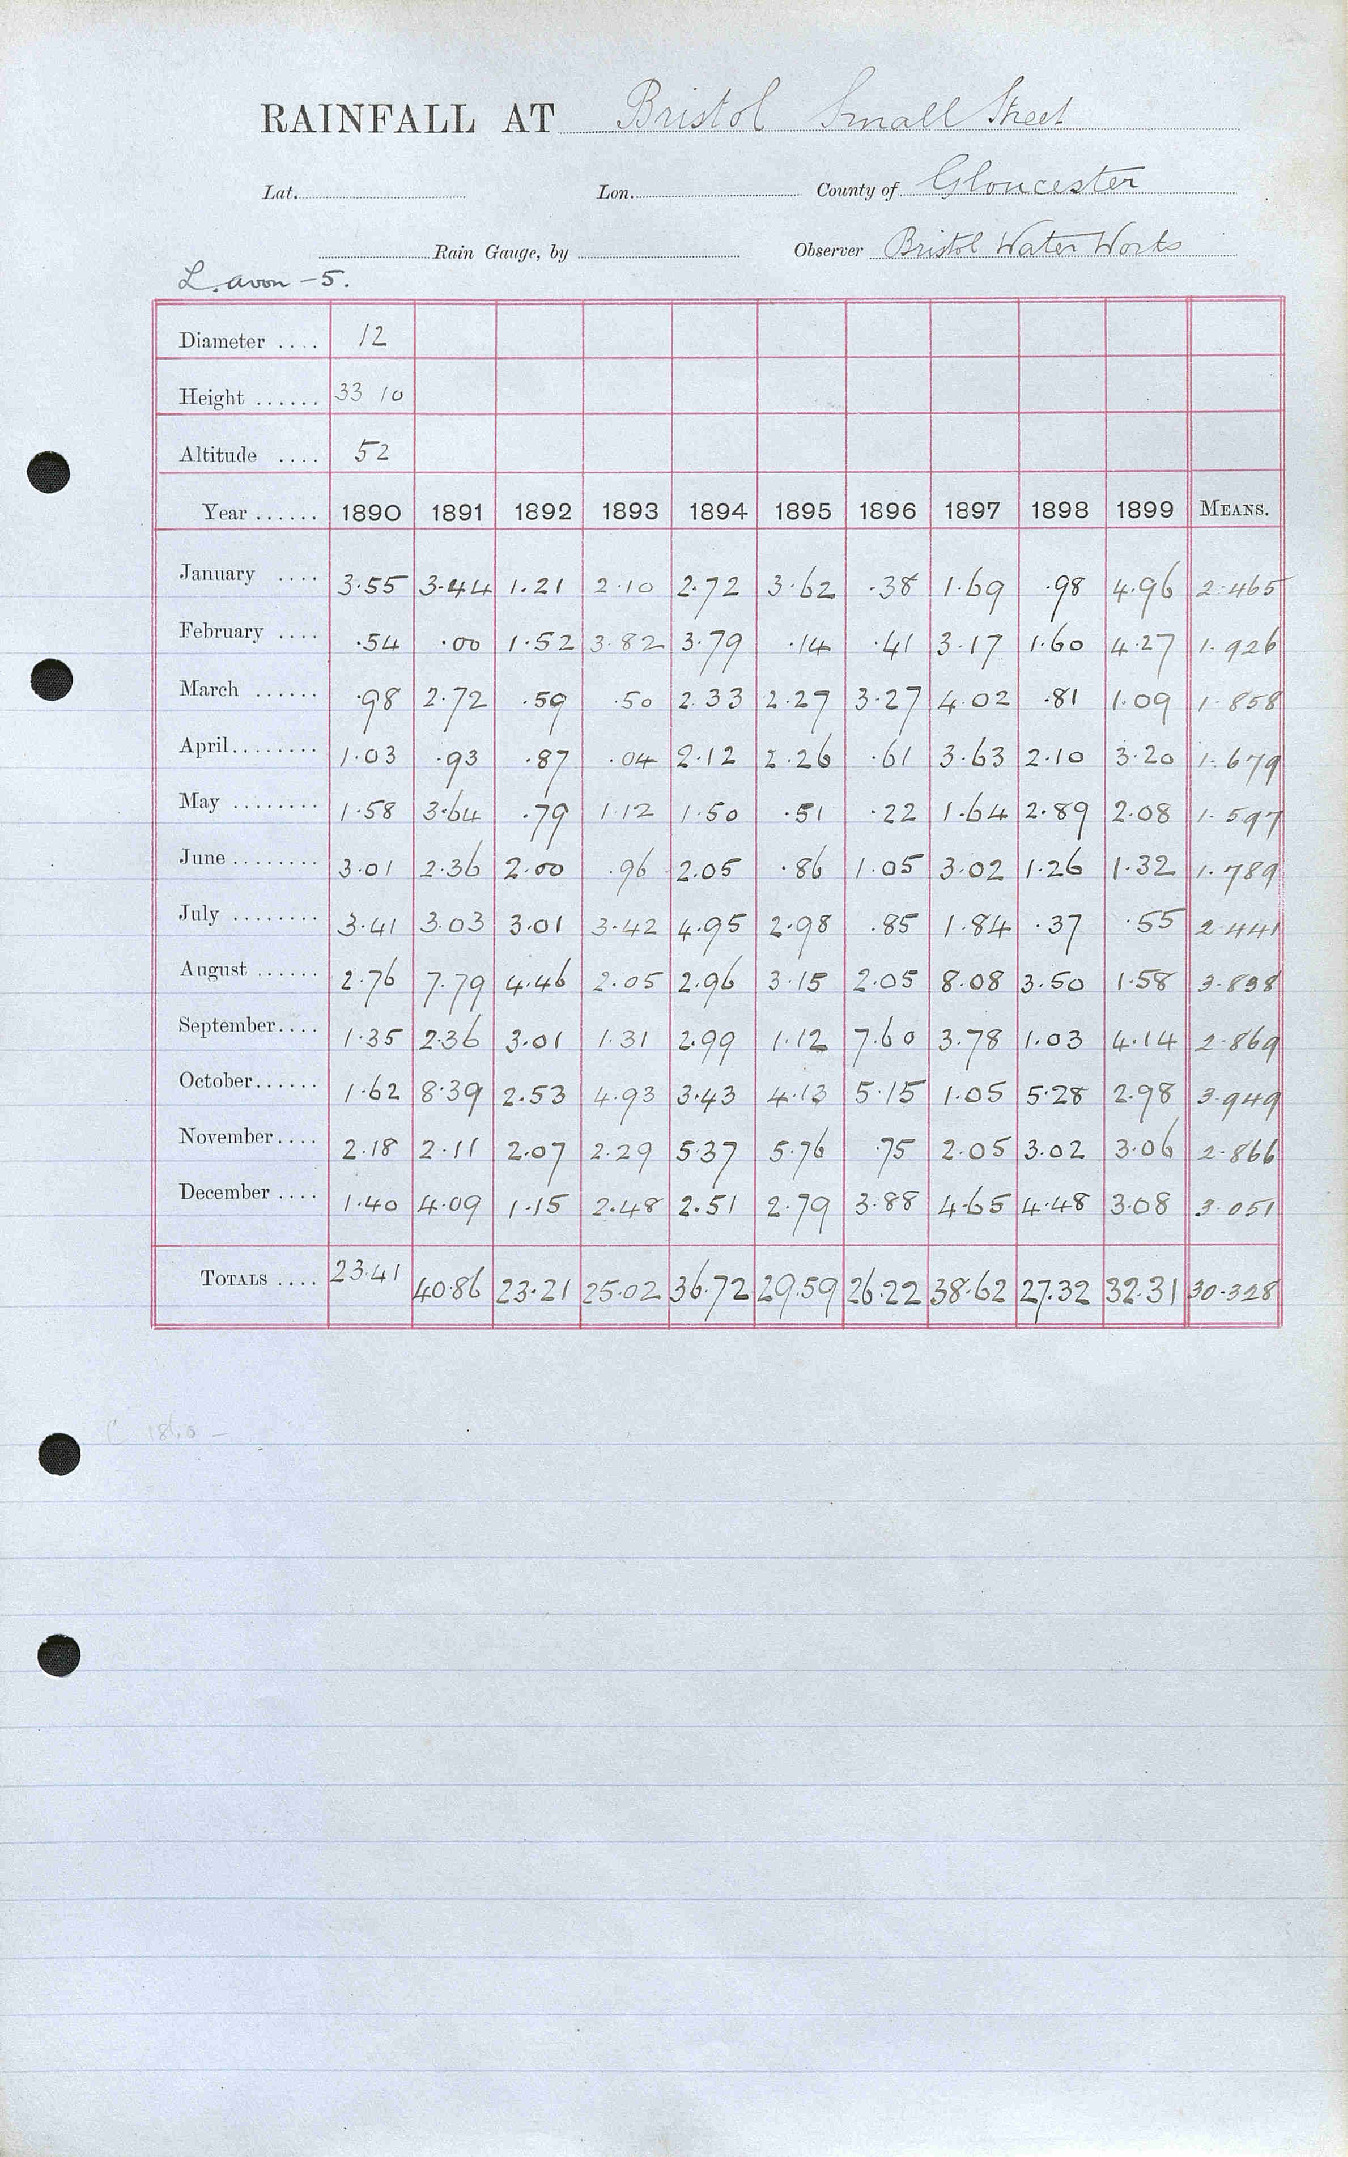 RAINFALL AT Bristol Small Street
Lat. Lon. County of Gloucester
Rain Gauge, by Observer Bristol Water Works
L. avon - 5.
Diameter .... 12
Height ...... 33 10
Altitude .... 52
Year ...... 1890 1891 1892 1893 1894 1895 1896 1897 1898 1899 MEANS.
January .... 3.55 3.44 1.21 2.10 2.72 3.62 .38 1.69 .98 4.96 2.465
February .... .54 .00 1.52 3.82 3.79 .14 .41 3.17 1.60 4.27 1.926
March ...... .98 2.72 .59 .50 2.33 2.27 3.27 4.02 .81 1.09 1.858
April........ 1.03 .93 .87 .04 2.12 2.26 .61 3.63 2.10 3.20 1.679
May ........ 1.58 3.64 .79 1.12 1.50 .51 .22 1.64 2.89 2.08 1.597
June ........ 3.01 2.36 2.00 .96 2.05 .86 1.05 3.02 1.26 1.32 1.789
July ........ 3.41 3.03 3.01 3.42 4.95 2.98 .85 1.84 .37 .55 2.441
August ...... 2.76 7.79 4.46 2.05 2.96 3.15 2.05 8.08 3.50 1.58 3.838
September.... 1.35 2.36 3.01 1.31 2.99 1.12 7.60 3.78 1.03 4.14 2.869
October...... 1.62 8.39 2.53 4.93 3.43 4.13 5.15 1.05 5.28 2.98 3.949
November.... 2.18 2.11 2.07 2.29 5.37 5.76 .75 2.05 3.02 3.06 2.866
December .... 1.40 4.09 1.15 2.48 2.51 2.79 3.88 4.65 4.48 3.08 3.051
TOTALS .... 23.41 40.86 23.21 25.02 36.72 29.59 26.22 38.62 27.32 32.31 30.328